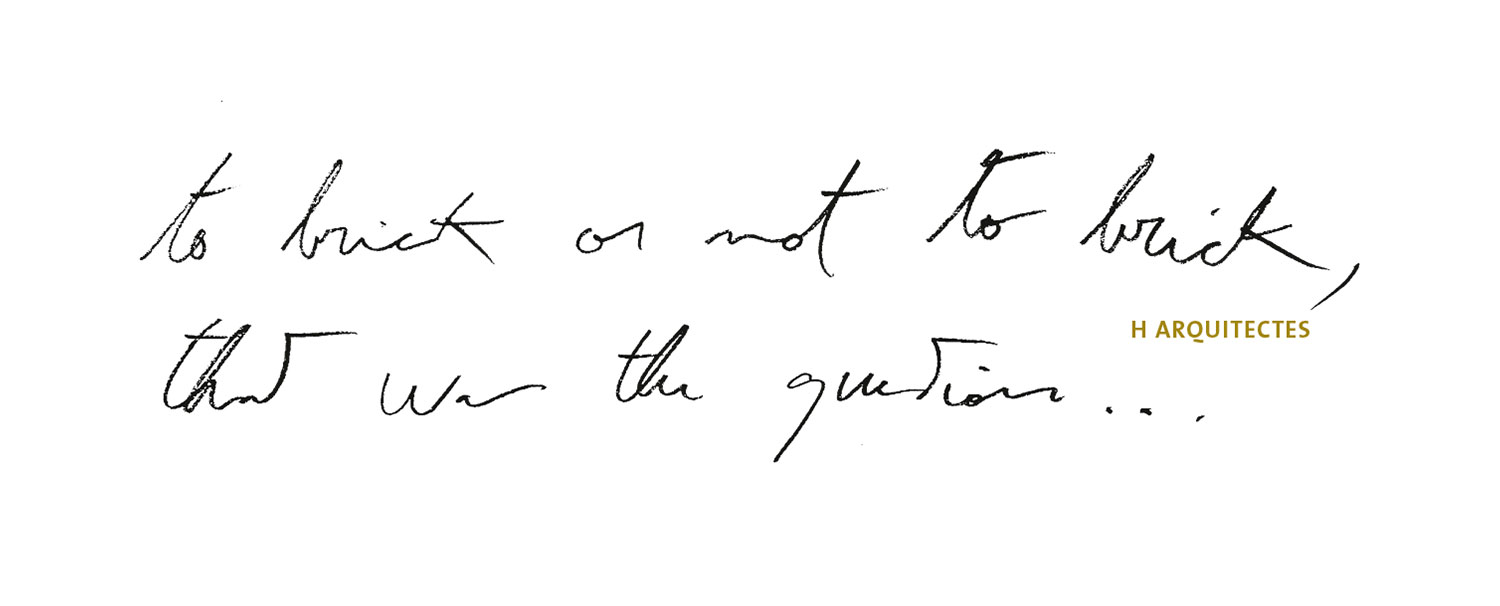 to brick or not to brick,
H ARQUITECTES
that was the question...